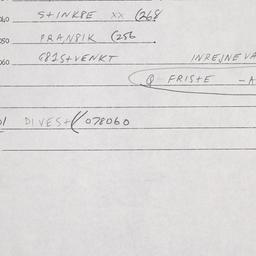 060 STINKBE XX (268
050 PRANBIK (256
060 G81STVENKT INREJNEVA
Q - FRISTE - A
01 DIVEST 078060